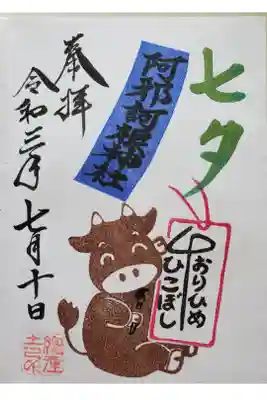 七夕
阿邪訶根神社
おりひめ
ひこぼし
奉拝
令和三年 七月十日